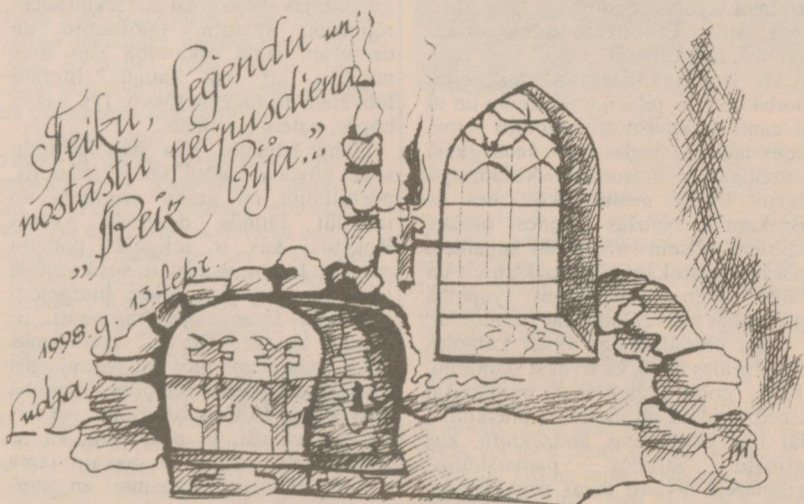 Teiku, leģendu un
nostāstu pēcpusdiena
„Reiz bija..."
1998.g. 13.febr.
Ludza